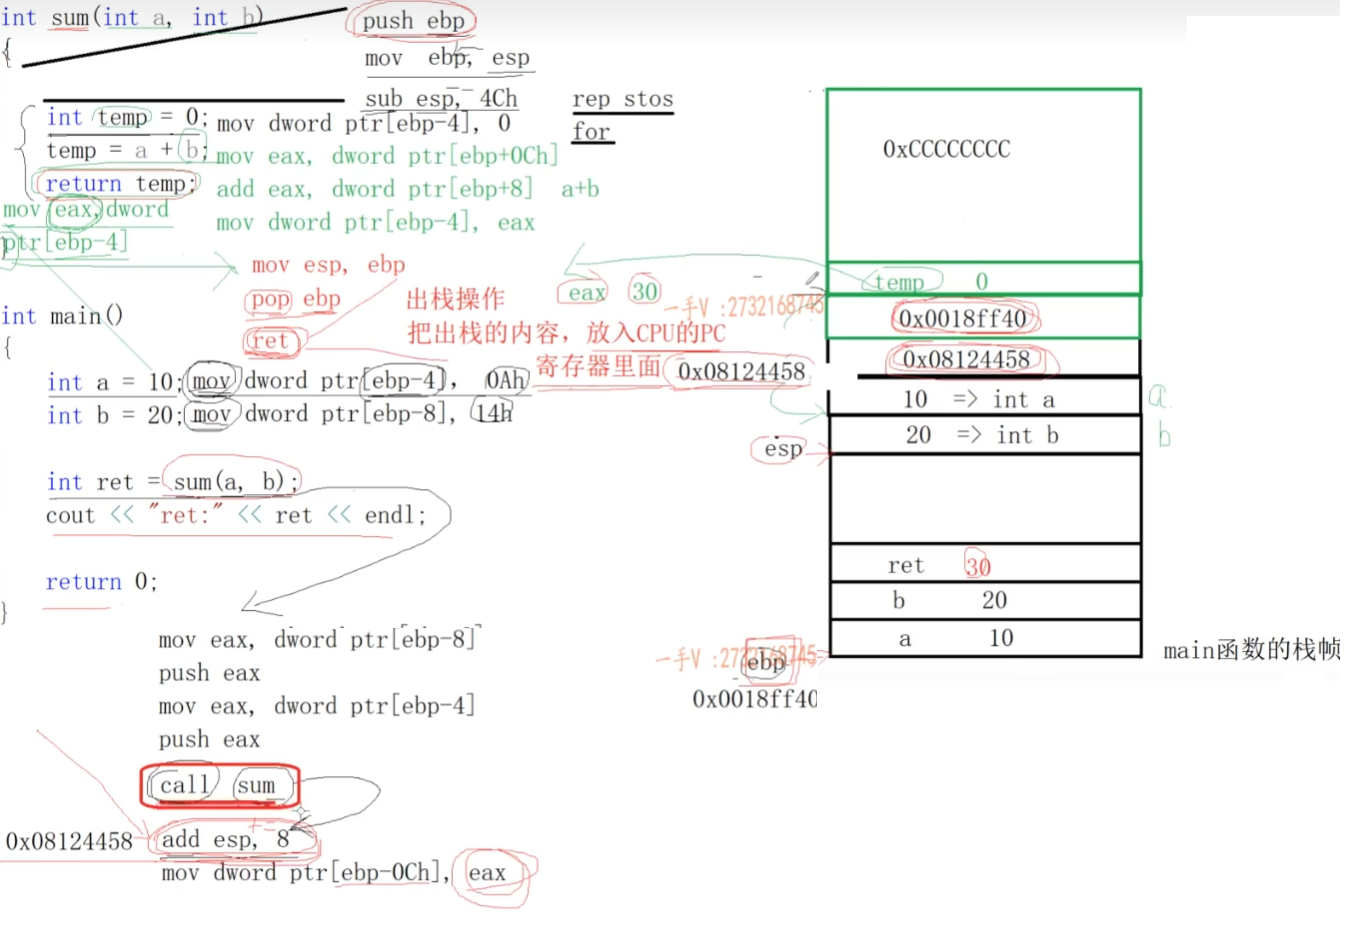 int sum(int a, int b)
{
push ebp
mov ebp, esp
sub esp, 4Ch
rep stos
for
int temp = 0; mov dword ptr[ebp-4], 0
temp = a + b; mov eax, dword ptr[ebp+0Ch]
return temp; add eax, dword ptr[ebp+8] a+b
mov eax,dword
ptr[ebp-4]
mov dword ptr[ebp-4], eax
}
mov esp, ebp
pop ebp
ret
出栈操作
把出栈的内容，放入CPU的PC
寄存器里面 0x08124458
eax 30
一手V :2732168745
int main()
{
int a = 10; mov dword ptr[ebp-4], 0Ah
int b = 20; mov dword ptr[ebp-8], 14h
int ret = sum(a, b);
cout << "ret:" << ret << endl;
return 0;
}
mov eax, dword ptr[ebp-8]
push eax
mov eax, dword ptr[ebp-4]
push eax
call sum
0x08124458 add esp, 8
mov dword ptr[ebp-0Ch], eax
0xCCCCCCCC
temp 0
0x0018ff40
0x08124458
10 => int a a
20 => int b b
esp
ret 30
b 20
a 10
一手V :2732168745
ebp
0x0018ff40
main函数的栈帧